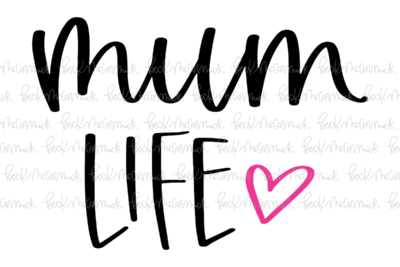 mum
LIFE